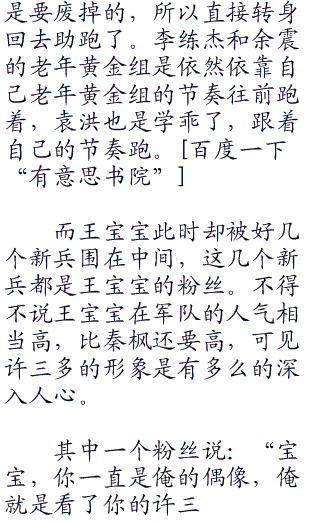 是要废掉的，所以直接转身
回去助跑了。李练杰和余震
的老年黄金组是依然依靠自
己老年黄金组的节奏往前跑
着，袁洪也是学乖了，跟着
自己的节奏跑。[百度一下
“有意思书院”]
而王宝宝此时却被好几
个新兵围在中间，这几个新
兵都是王宝宝的粉丝。不得
不说王宝宝在军队的人气相
当高，比秦枫还要高，可见
许三多的形象是有多么的深
入人心。
其中一个粉丝说：“宝
宝，你一直是俺的偶像，俺
就是看了你的许三